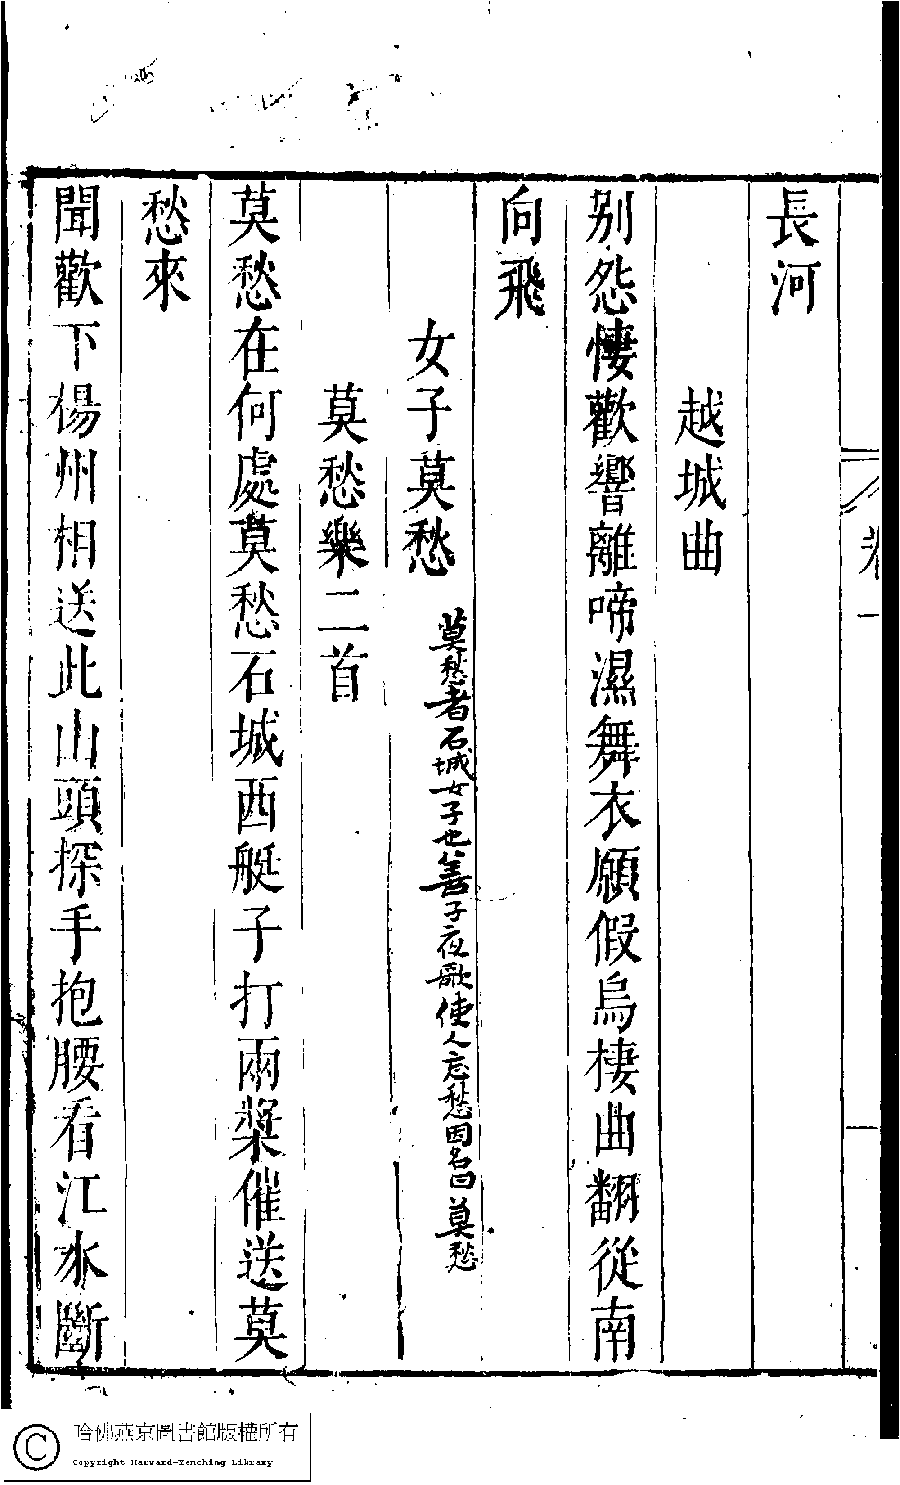 卷一
長河
越城曲
别怨悽歡響離啼濕舞衣願假烏棲曲翻從南
向飛
女子莫愁
莫愁者石城女子也善子夜歌使人忘愁因名曰莫愁
莫愁樂二首
莫愁在何處莫愁石城西艇子打兩槳催送莫
愁來
聞歡下楊州相送此山頭探手抱腰看江水斷
哈佛燕京圖書館版權所有
Copyright Harvard-Yenching Library